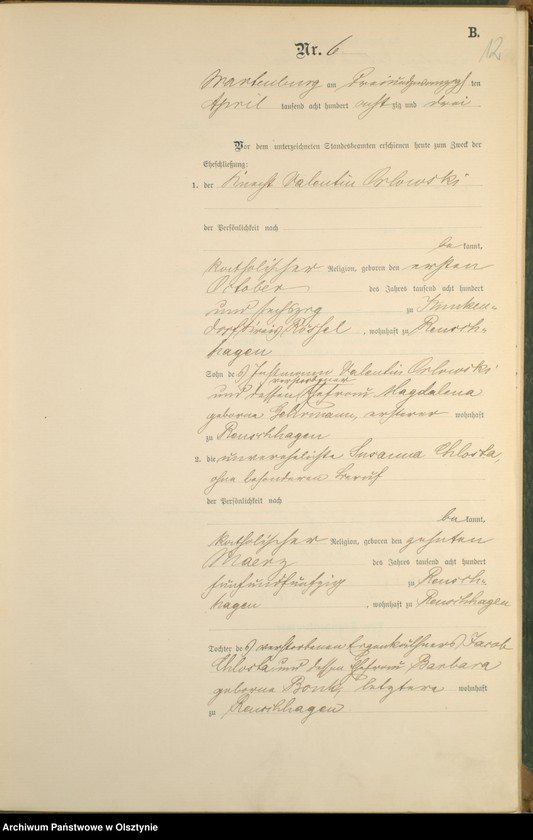 B.
12
Nr. 6
Wartenburg am Dreiundzwanzigsten
April tausend acht hundert achtzig und drei
Vor dem unterzeichneten Standesbeamten erschienen heute zum Zweck der
Eheschließung:
1. der Knecht Valentin Orlowski
der Persönlichkeit nach
be kannt,
katholischer Religion, geboren den ersten
October des Jahres tausend acht hundert
und sechszig zu
dorf Kreis Rössel, wohnhaft zu Reusch-
hagen
Sohn des Valentin Orlowski
und dessen verstorbener Ehefrau Magdalena
geborne Gehrmann, ersterer wohnhaft
zu Reuschhagen
2. die unverehelichte Susanna Chlosta,
ohne besonderen Beruf
der Persönlichkeit nach
be kannt,
katholischer Religion, geboren den zehnten
Maerz des Jahres tausend acht hundert
fünfundfünfzig zu Reusch-
hagen, wohnhaft zu Reuschhagen
Tochter des verstorbenen Eigenkäthners Jacob
Chlosta und dessen Ehefrau Barbara
geborne letztere wohnhaft
zu Reuschhagen
Archiwum Państwowe w Olsztynie